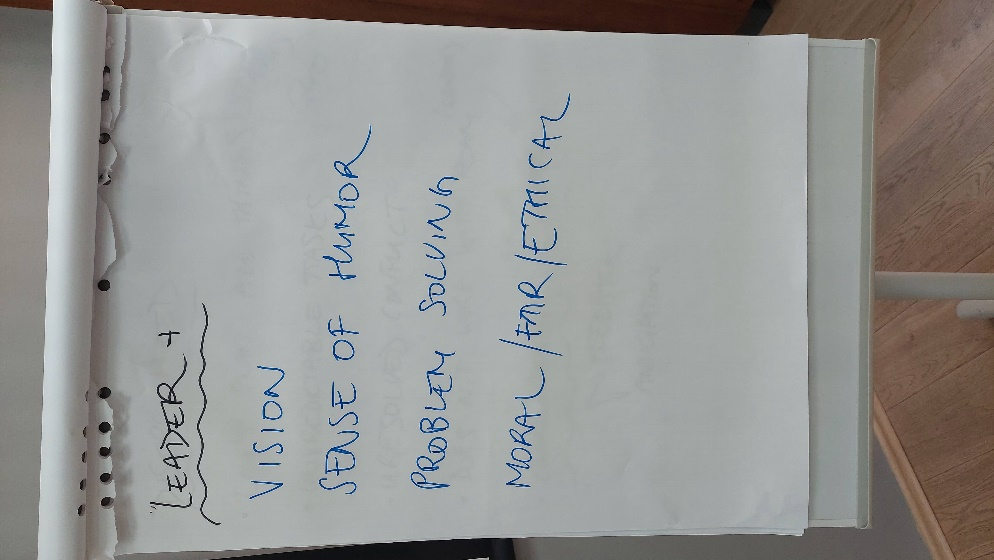 "LEADER +
VISION
SENSE OF HUMOR
PROBLEM SOLVING
MORAL / FAIR / ETHICAL